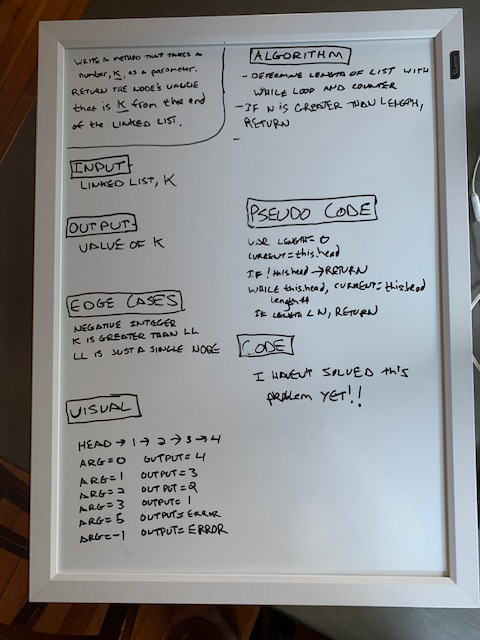 WRITE A METHOD THAT TAKES A
number, K, as a parameter.
RETURN THE NODE'S VALUE
that is K from the end
of the LINKED LIST.
INPUT
LINKED LIST, K
OUTPUT
VALUE OF K
EDGE CASES
NEGATIVE INTEGER
K IS GREATER THAN LL
LL IS JUST A SINGLE NODE
VISUAL
HEAD → 1 → 2 → 3 → 4
ARG=0 OUTPUT=4
ARG=1 OUTPUT=3
ARG=2 OUTPUT=2
ARG=3 OUTPUT=1
ARG=5 OUTPUT=ERROR
ARG=-1 OUTPUT=ERROR
ALGORITHM
- DETERMINE LENGTH OF LIST WITH
WHILE LOOP AND COUNTER
- IF N IS GREATER THAN LENGTH,
RETURN
-
PSEUDO CODE
VAR LENGTH=0
CURRENT=this.head
IF !this.head → RETURN
WHILE this.head, CURRENT=this.head
length++
IF LENGTH < N, RETURN
CODE
I HAVEN'T SOLVED this
problem YET!!